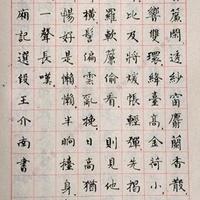 簾閑透紗窗麝蘭香散
響雙環絳臺高金荷小
比及將煖帳輕彈先揭
羅軟簾偷看則見他
橫髻偏雲亂挽日高猶
暢好是懶懶半晌擡身
一聲長嘆
廂記選段王介南書